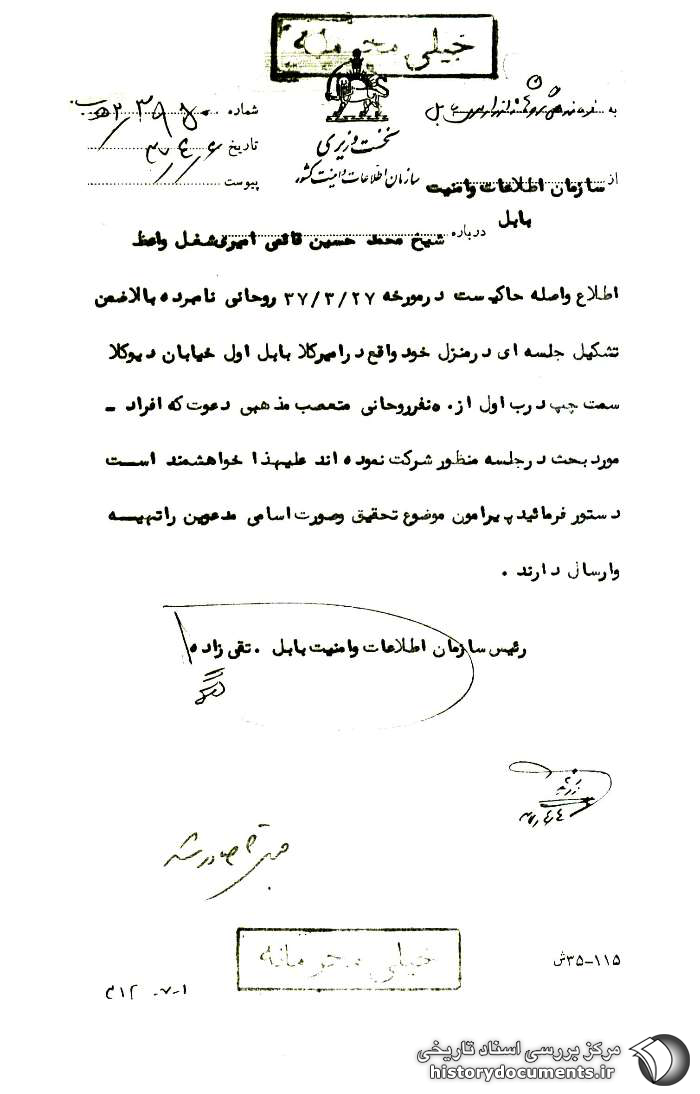 خیلی محرمانه
به
شماره
نخست وزیری
تاریخ
سازمان اطلاعات و امنیت کشور
پیوست
از سازمان اطلاعات وامنیت بابل
درباره شیخ محمد حسین شغل واعظ
اطلاع واصله حاکیست درمورخه ۳۷/۳/۲۷ روحانی نامبرده بالاضمن
تشکیل جلسه ای درمنزل خود واقع درامیرکلا بابل اول خیابان دیوکلا
سمت چپ درب اول از۵۰ نفرروحانی متعصب مذهبی دعوت که افراد -
مورد بحث درجلسه منظور شرکت نموده اند علیهذا خواهشمند است
دستور فرمائید پیرامون موضوع تحقیق وصورت اسامی مدعوین راتهیه
وارسال دارند .
رئیس سازمان اطلاعات وامنیت بابل . تقی زاده
خیلی محرمانه
۳۵-۱۱۵ش
مرکز بررسی اسناد تاریخی
historydocuments.ir